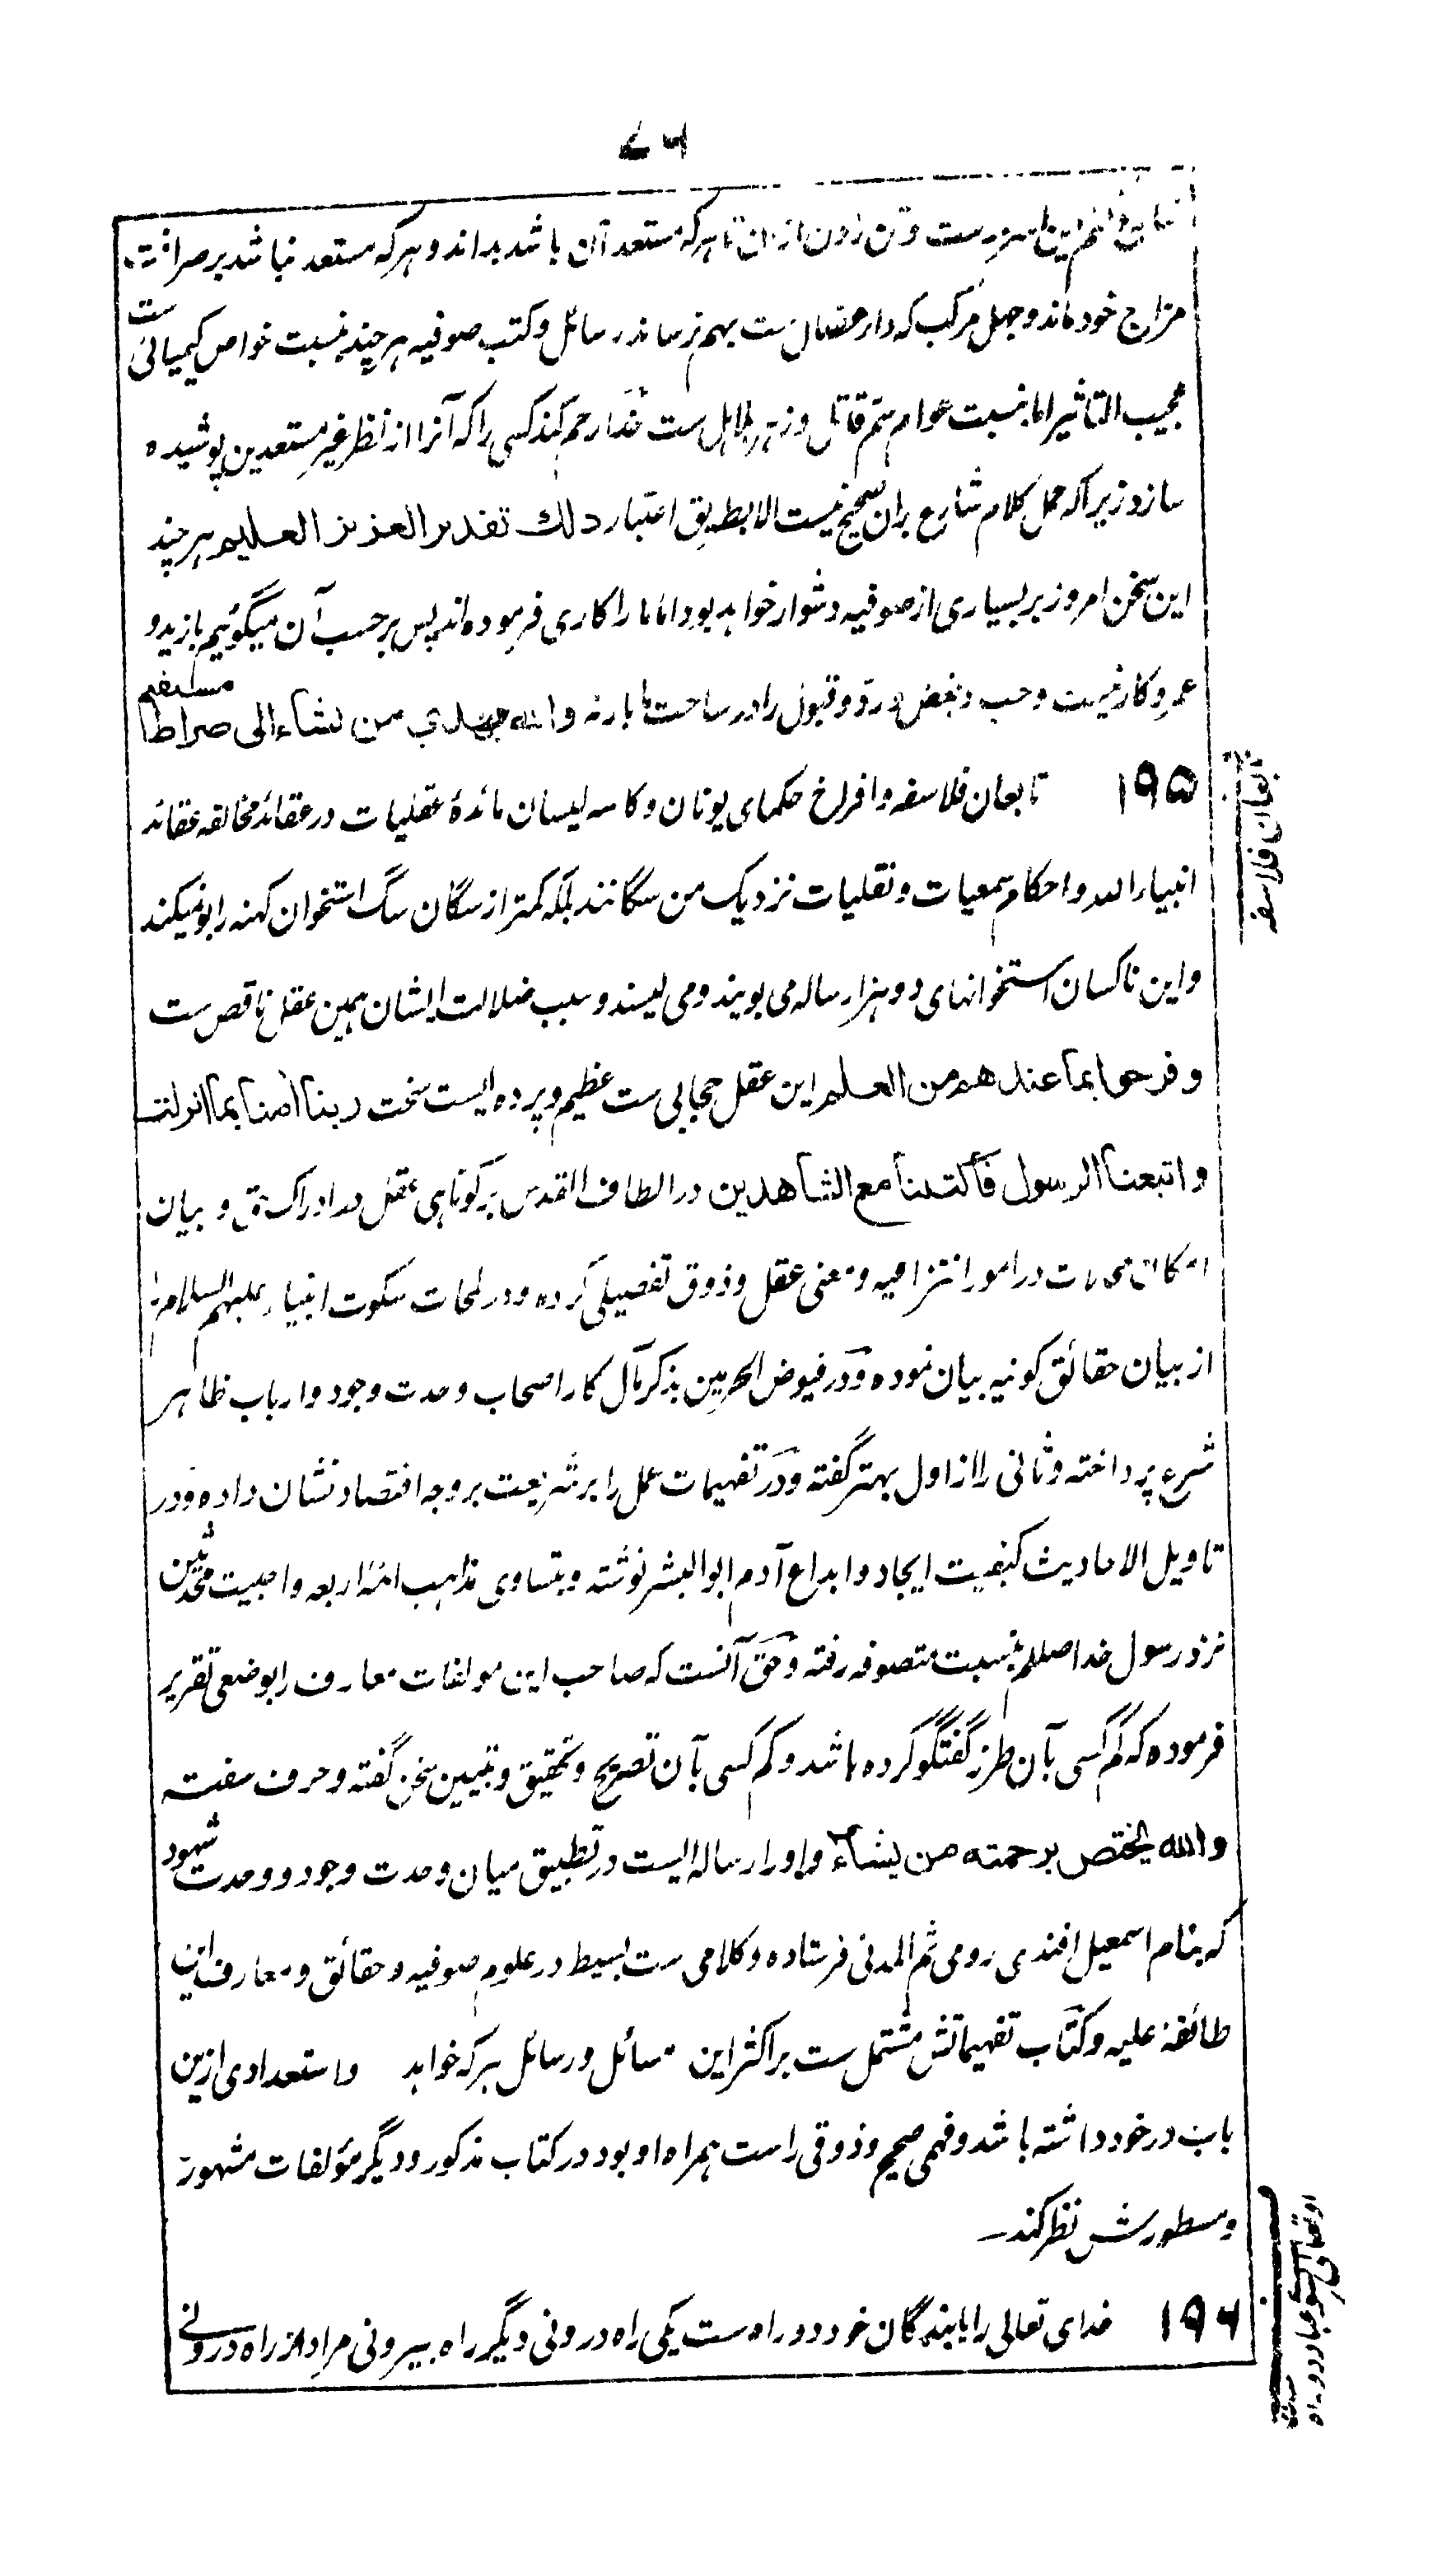 ۷۶
ست و تن زدن ازان تا هر که مستعد آن باشد بداند و هر که مستعد نباشد بر صرافت
مزاج خود ماند و جهل مرکب که داء عضال ست بهم نرساند رسائل و کتب صوفیه هر چند بنسبت خواص کیمیائی ست
عجیب التاثیر اما بنسبت عوام سم قاتل و زهر هلاهل ست خدا رحم کند کسی را که آنرا از نظر غیر مستعدین پوشیده
سازد زیرا که حمل کلام شارع بران صحیح نیست الا بطریق اعتبار ذلك تقدير العزيز العليم هر چند
این سخن امروز بر بسیاری از صوفیه دشوار خواهد بود اما ما را کاری فرموده اند پس بر حسب آن میگوئیم با زید و
عمرو کار نیست و حب و بغض و رد و قبول را در ساحت ما بار نه والله يهدي من يشاء الى صراط مستقيم
۱۹۵ تابعان فلاسفه و افراخ حکمای یونان و کاسه لیسان مائدهٔ عقلیات در عقائد مخالفه عقائد
انبیاء الله و احکام سمعیات و نقلیات نزدیک من سگانند بلکه کمتر از سگان سگ استخوان کهنه را بو نمیکند
و این ناکسان استخوانهای دو هزار ساله می بویند و می لیسند و سبب ضلالت ایشان همین عقل ناقص ست
و فرحوا بما عندهم من العلم این عقل حجابی ست عظیم و پرده ایست سخت ربنا آمنا بما انزلت
و اتبعنا الرسول فاكتبنا مع الشاهدين در الطاف القدس بر کوتاهی عقل در ادراک حق و بیان
در امور انتزاعیه و معنی عقل و ذوق تفصیلی کرده و در لمحات سکوت انبیاء علیهم السلام
از بیان حقائق کونیه بیان نموده و در فیوض الحرمین بذکر مآل کار اصحاب وحدت وجود و ارباب ظاهر
شرع پرداخته و ثانی را از اول بهتر گفته و در تفهیمات عمل را بر شریعت بر وجه اقتصاد نشان داده و در
تاویل الاحادیث کیفیت ایجاد و ابداع آدم ابو البشر نوشته و بتساوی مذاهب ائمه اربعه و احبیت محدثین
نزد رسول خدا صللم بنسبت متصوفه رفته و حق آنست که صاحب این مولفات معارف را بوضعی تقریر
فرموده که کم کسی بآن طرز گفتگو کرده باشد و کم کسی بآن تصریح و تحقیق و تبیین سخن گفته و حرف سفته
والله يختص برحمته من يشاء و او را رساله ایست در تطبیق میان وحدت وجود و وحدت شهود
که بنام اسمعیل افندی رومی ثم المدنی فرستاده و کلامی ست بسیط در علوم صوفیه و حقائق و معارف این
طائفهٔ علیه و کتاب تفهیماتش مشتمل ست بر اکثر این مسائل و رسائل هر که خواهد و استعدادی ازین
باب در خود داشته باشد و فهمی صحیح و ذوقی راست همراه او بود در کتاب مذکور و دیگر مؤلفات مشهوره
و مسطورش نظر کند ـ
۱۹۶ خدای تعالی را با بندگان خود دو راه ست یکی راه درونی و دیگر راه بیرونی مراد از راه درونی
تابعان فلاسفه